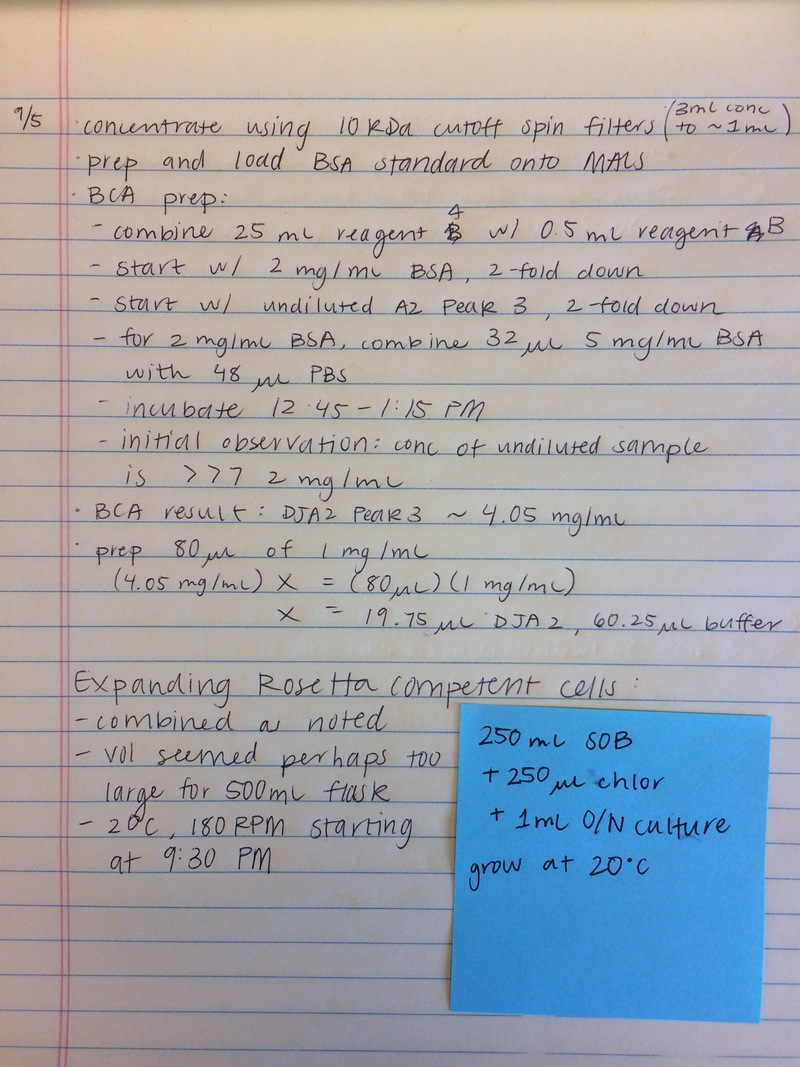 9/5
· concentrate using 10 KDa cutoff spin filters (3mL conc to ~1mL)
· prep and load BSA standard onto MALS
· BCA prep:
- combine 25 mL reagent A w/ 0.5 mL reagent B
- start w/ 2 mg/mL BSA, 2-fold down
- start w/ undiluted A2 Peak 3, 2-fold down
- for 2 mg/mL BSA, combine 32 μL 5 mg/mL BSA
with 48 μL PBS
- incubate 12:45 - 1:15 PM
- initial observation: conc of undiluted sample
is >>> 2 mg/mL
· BCA result: DJA2 Peak 3 ~ 4.05 mg/mL
· prep 80 μL of 1 mg/mL
(4.05 mg/mL) X = (80 μL)(1 mg/mL)
X = 19.75 μL DJA2, 60.25 μL buffer
Expanding Rosetta competent cells:
- combined as noted
- vol seemed perhaps too
large for 500mL flask
- 20°C, 180 RPM starting
at 9:30 PM
250 mL SOB
+ 250 μL chlor
+ 1mL O/N culture
grow at 20°C